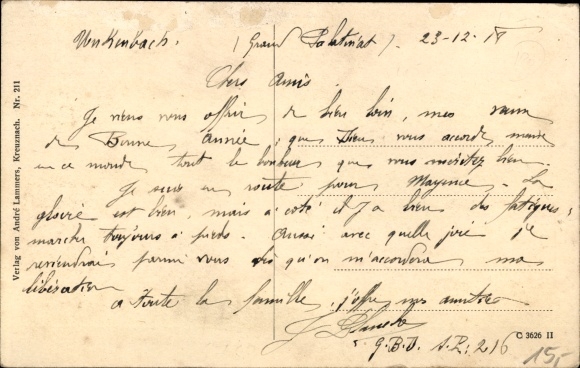 Unkenbach. (Grand Palatinat). 23-12-18
Chers Amis.
Je viens vous offrir de bien loin, mes vœux
de Bonne Année, que Dieu vous accorde, même
en ce monde tout le bonheur que vous méritez bien.
Je suis en route pour Mayence. La
gloire est bien, mais à côté il y a bien des fatigues,
marcher toujours à pieds. Aussi avec quelle joie je
reviendrai parmi vous dès qu'on m'accordera ma
libération
à toute la famille, j'offre mes amitiés
G.B.D. S.P: 216
Verlag von André Lammers, Kreuznach. Nr. 211
C 3626 II
15,-